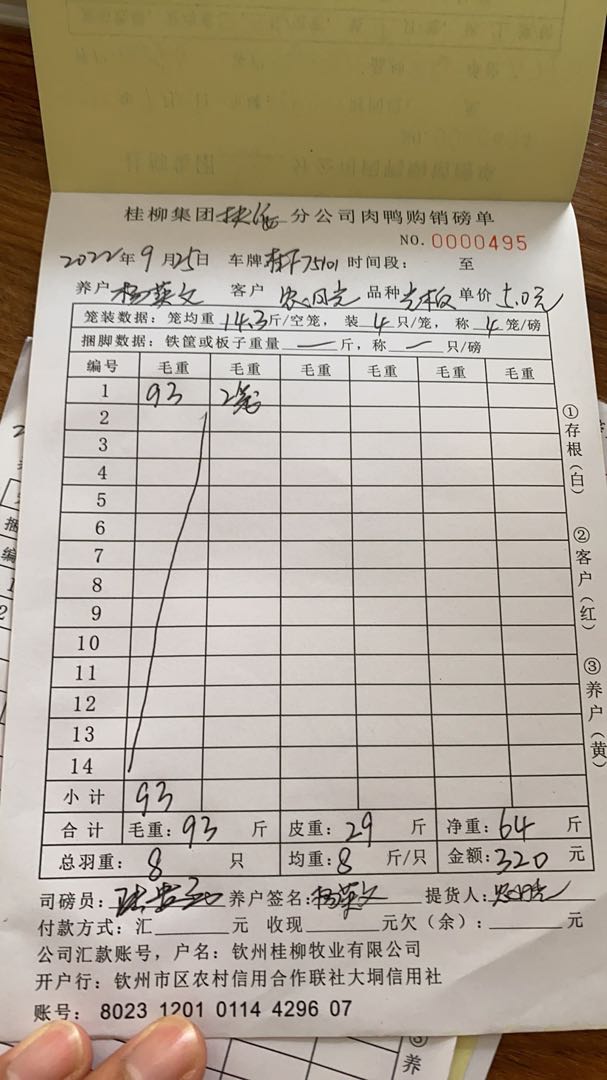 桂柳集团分公司肉鸭购销磅单
NO.0000495
2022年9月25日 车牌75101 时间段: 至
养户杨英文 客户 品种 单价5.0元
笼装数据:笼均重14.3斤/空笼,装4只/笼,称4笼/磅
捆脚数据:铁筐或板子重量一斤,称一只/磅
编号 毛重 毛重 毛重 毛重 毛重 毛重
1 93 2笼
2
3
4
5
6
7
8
9
10
11
12
13
14
小计 93
合计 毛重:93斤 皮重:29斤 净重:64斤
总羽重:8只 均重:8斤/只 金额:320元
司磅员: 养户签名:杨英文 提货人:
付款方式:汇______元 收现______元欠(余):______元
公司汇款账号,户名:钦州桂柳牧业有限公司
开户行:钦州市区农村信用合作联社大垌信用社
账号:8023 1201 0114 4296 07
①存根(白)
②客户(红)
③养户(黄)
③养